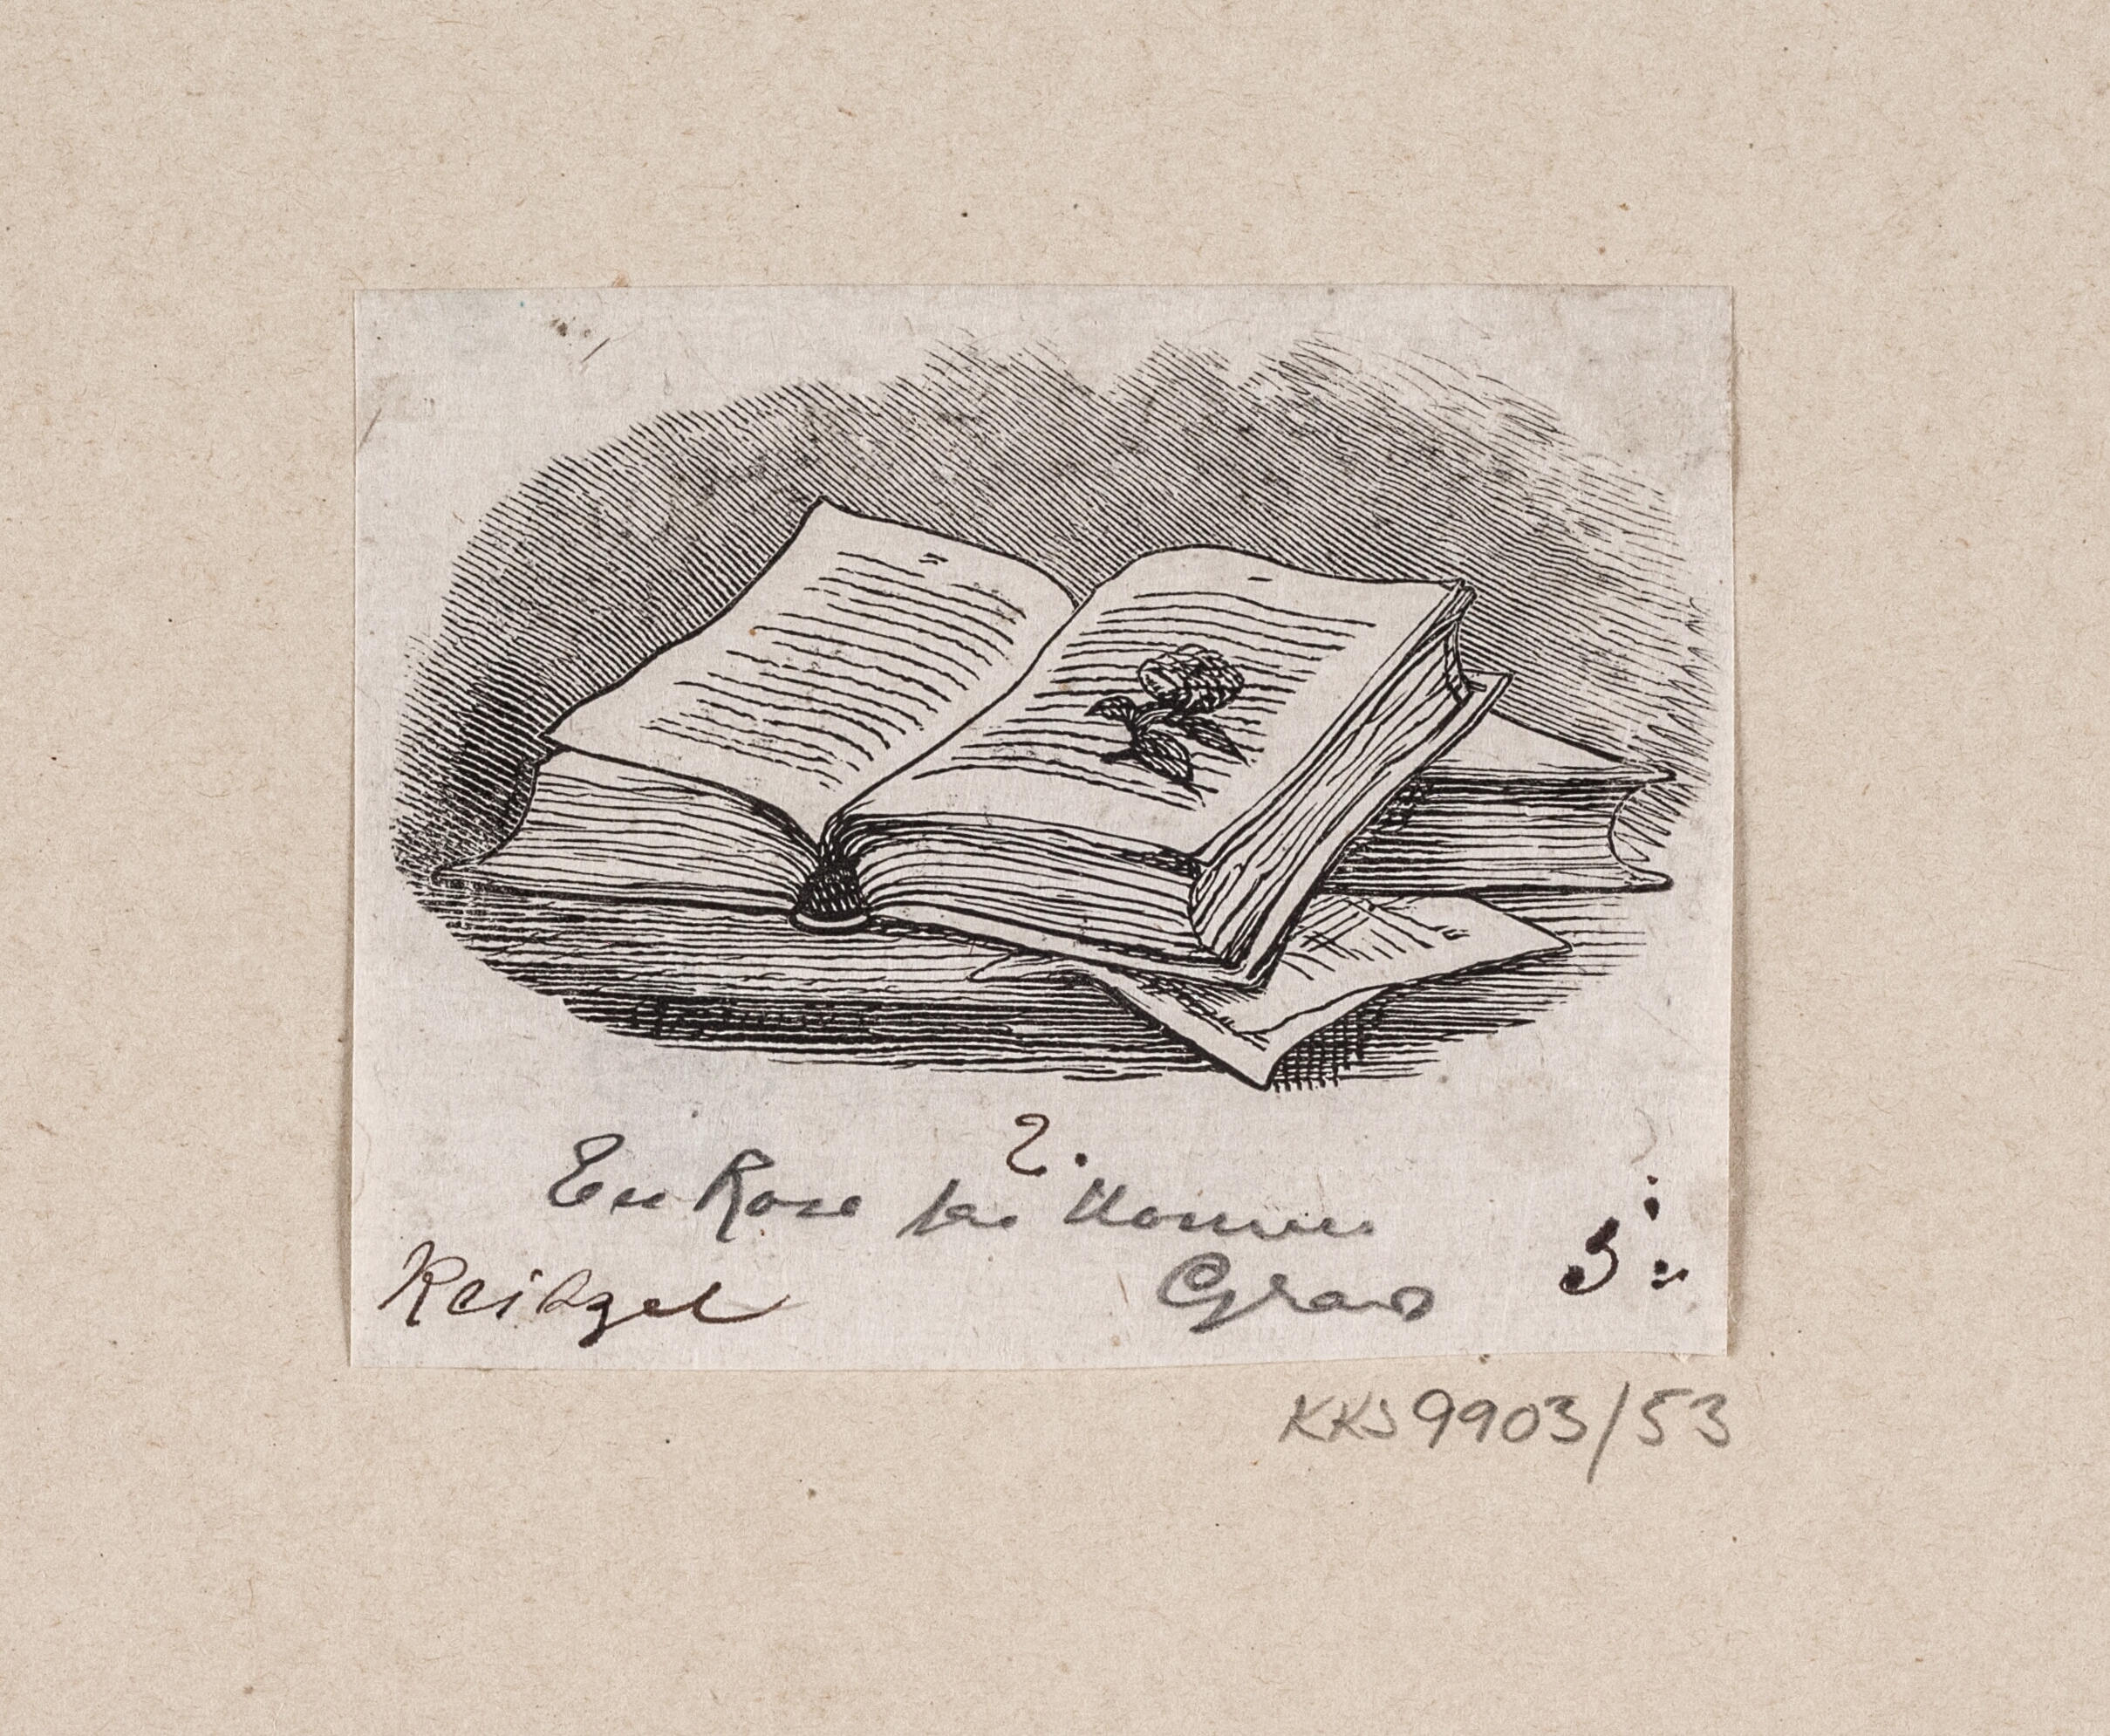 2.
En Rose fra Homers
Grav
Reitzel
3
KKS9903/53